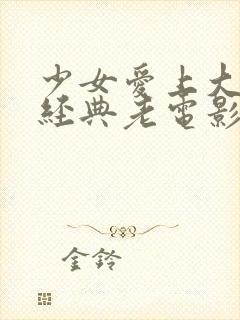 少女愛上大
經典老電影
金鈴